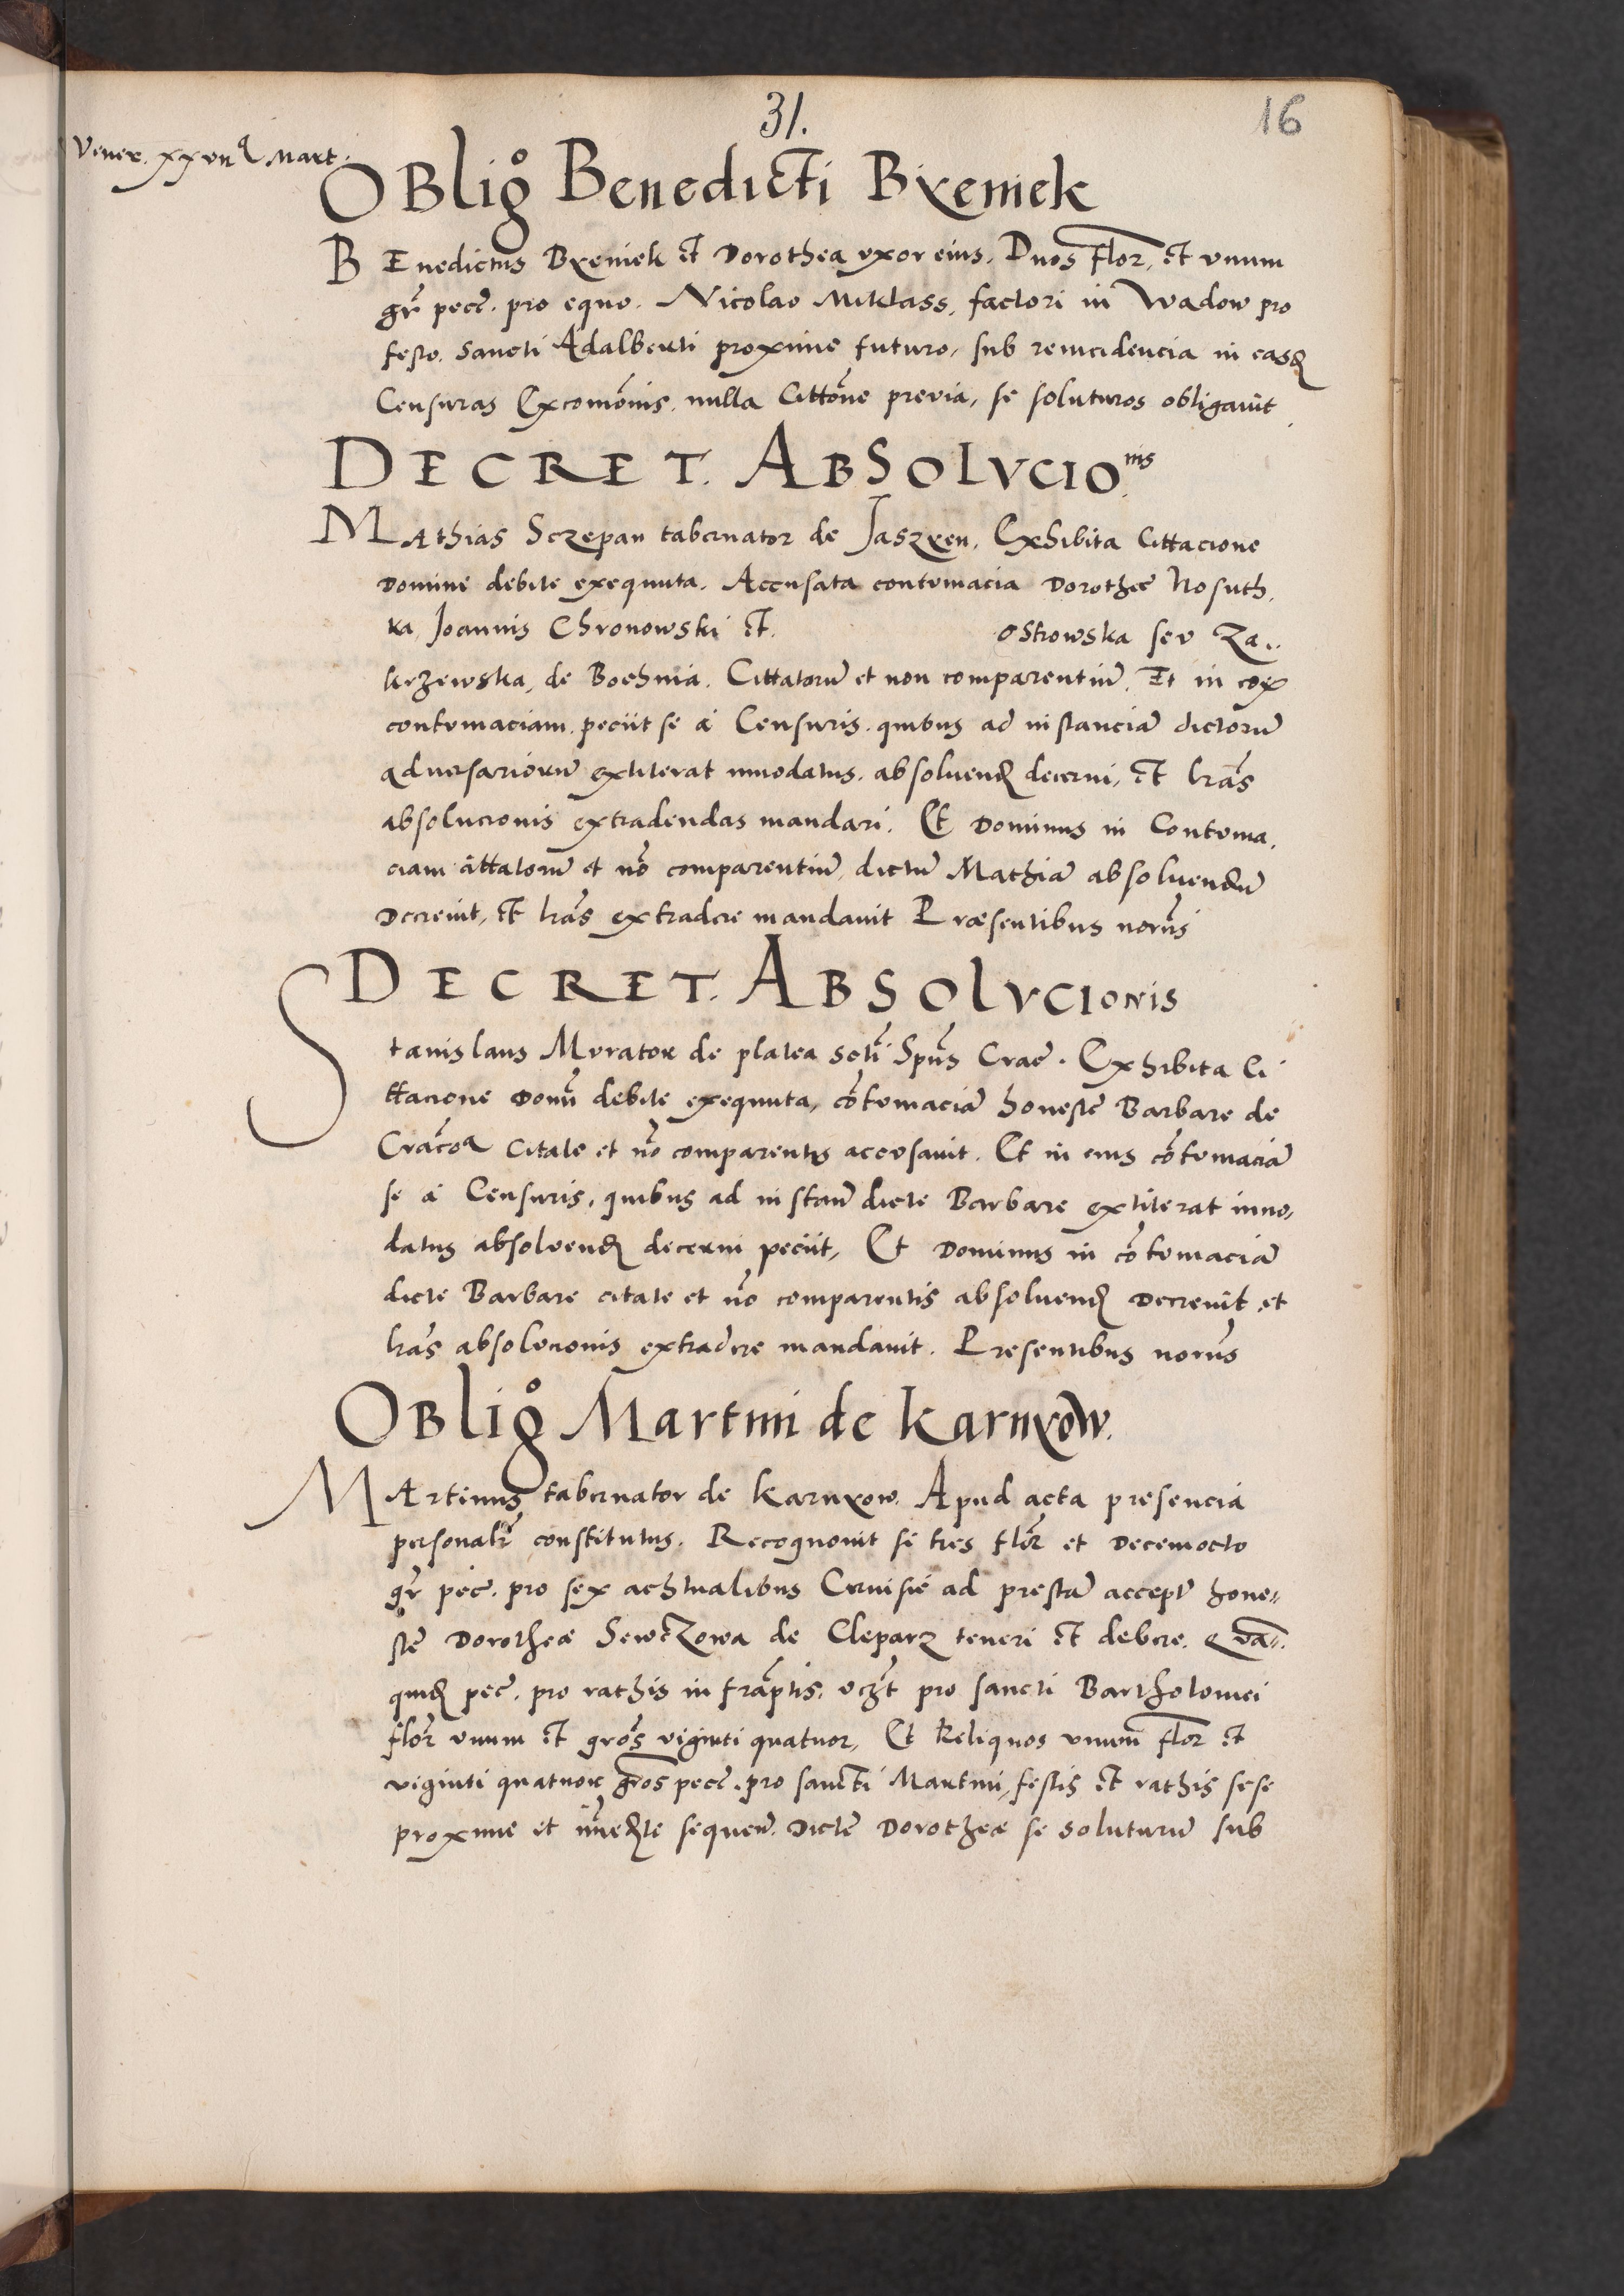 31.
16
Vener. xxvııª Mart.
OBligº Benedicti Bxeniek
BEnedictus Bxeniek et Dorothea vxor eius. Duos flor. et vnum
gr̃ pecc̃. pro equo. Nicolao Miklass, factori in Wadow pro
festo. Sancti Adalberti proxime futuro, sub reincidencia in easdẽ
Censuras Excom̃onis. nulla Citt̃one previa, se soluturos obligarũt
DECRET. ABSOLVCIOnis
MAthias Sczepan tabernator de Jaszxen, Exhibita Cittacione
Domine debite exequuta. Accusata contumacia Dorothee Nosuth,
ka, Joannis Chronowski et. Ostrowska seu Za..
krzewska, de Bochnia. Cittatorũ et non comparentiũ. Et in eoꝝ
contumaciam. peciit se à Censuris. quibus ad instanciã dictorũ
adversariorũ extiterat innodatus. absoluendẽ decerni, et lrãs
absolucionis extradendas mandari. Et Dominus in Contuma,
ciam cittatorũ et nõ comparentiũ, dictũ Mathiã absoluendũ
Decrevit, et lrãs extradere mandavit Præsentibus norũs
DECRET. ABSOLVCIonis
Stanislaus Murator de platea sctĩ Spũs Crac̃. Exhibita Ci
ttacione Domũ debite exequuta, cõtumaciã honeste Barbare de
Crac̃oª Citate et nõ comparentis accusavit. Et in eius cõtumaciã
se à Censuris, quibus ad instañ dicte Barbare extiterat inno,
datus absolvendẽ decerni peciit, Et Dominus in cõtumaciã
dicte Barbare citate et nõ comparentis absoluendẽ Decrevit, et
lrãs absolucionis extradere mandavit. Presentibus norũs
OBligº Martini de Karnxow.
MArtinus tabernator de Karnxow. Apud acta presencia
personalr̃ constitutus. Recognovit se tres flor̃ et Decemocto
gr̃ pec̃. pro sex achtualibus Cervisie ad prestã accept̃ hone,,
ste Dorotheæ Sewczowa de Cleparz teneri et debere. Quã..
quidẽ pec̃. pro rathis infrãptis, vcz̃t pro sancti Bartholomei
flor̃ vnum et gros̃ viginti quatuor, Et Reliquos vnum flor̃ et
viginti quatuor gros̃ pecc̃. pro sancti Martini, festis et rathis sese
proxime et im̃edẽte sequeñ. Dicte Dorotheæ se soluturũ sub